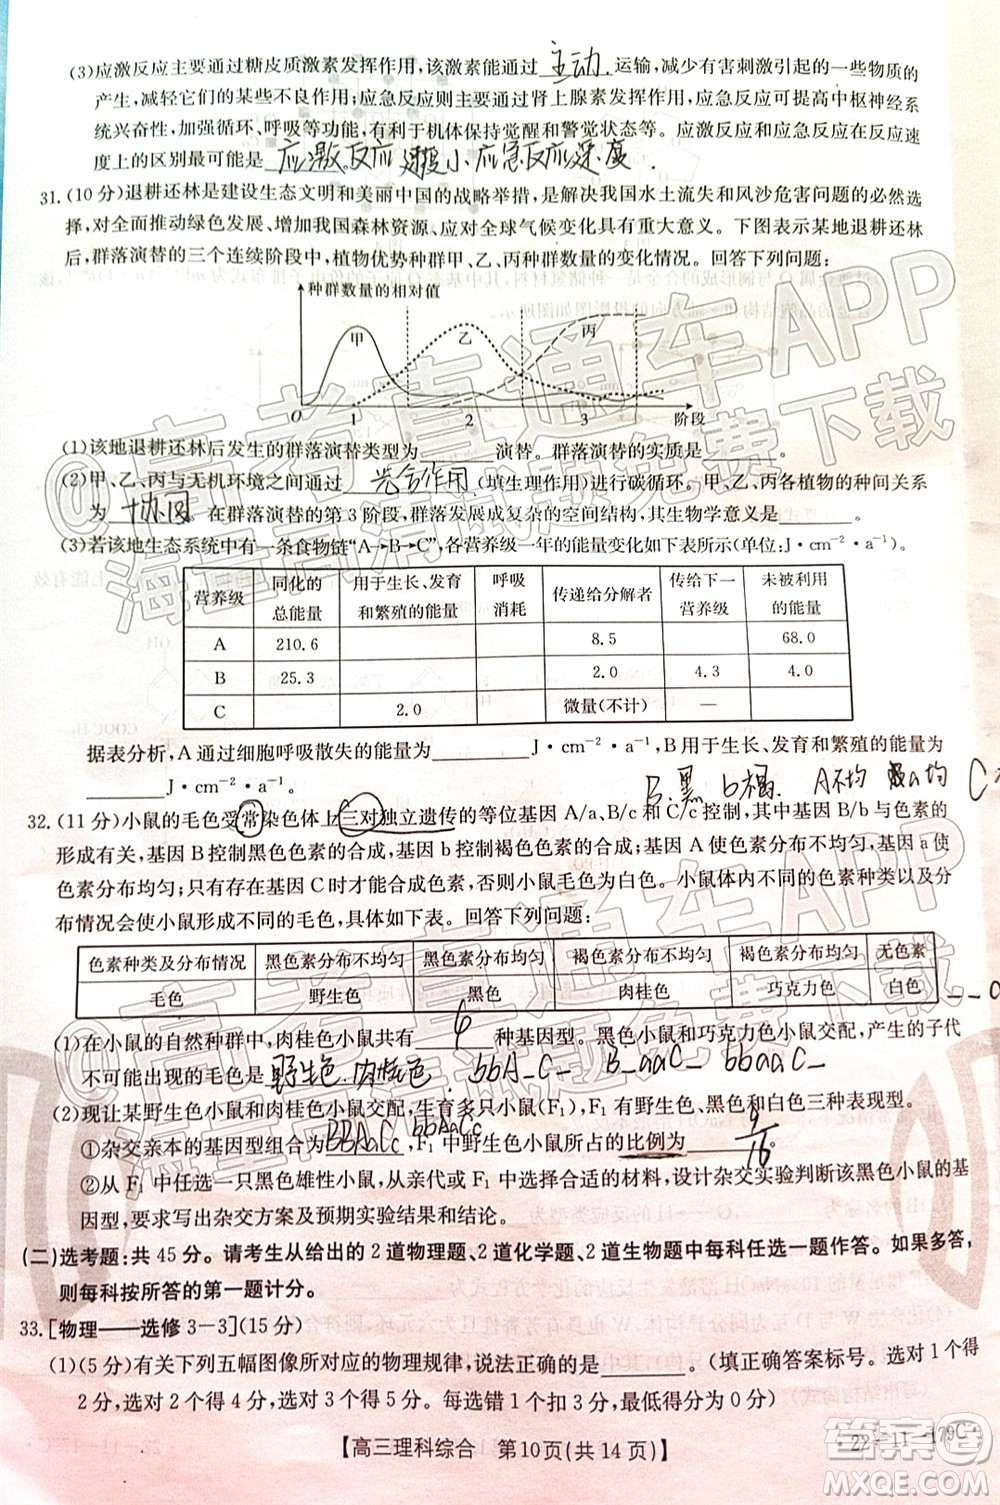 (3)应激反应主要通过糖皮质激素发挥作用,该激素能通过 主动 运输,减少有害刺激引起的一些物质的
产生,减轻它们的某些不良作用;应急反应则是通过肾上腺素发挥作用,能够提高中枢神经系
统兴奋性,加强循环、呼吸等功能,有利于机体保持觉醒和警觉状态等。应激反应和应急反应速
度上的区别最可能是 应激反应速度小应急反应速度 。
31.(10分)退耕还林是建设生态文明和美丽中国的战略举措,是解决我国水土流失和风沙危害问题的必然选
择,对全面推动绿色发展,增加我国森林资源、应对全球气候变化具有重大意义。下图表示某地退耕还林
后,群落演替的三个连续阶段中,植物优势种群甲、乙、丙种群数量的变化情况。回答下列问题:
种群数量的相对值
甲 乙 丙
O 1 2 3 阶段
(1)该地退耕还林后发生的群落演替类型为______演替。群落演替的实质是______。
(2)甲、乙、丙与无机环境之间通过 光合作用 (填生理作用)进行碳循环。甲、乙、丙各植物的种间关系
为 。在群落演替的第3阶段,群落发展成复杂的空间结构,其生物学意义是______。
(3)若该地生态系统中有一条食物链“A→B→C”,各营养级一年的能量变化如下表所示(单位:J·cm⁻²·a⁻¹)。
营养级 同化的总能量 用于生长、发育和繁殖的能量 呼吸消耗 传递给分解者 传给下一营养级 未被利用的能量
A 210.6 8.5 68.0
B 25.3 2.0 4.3 4.0
C 2.0 微量(不计)
据表分析,A通过细胞呼吸散失的能量为______J·cm⁻²·a⁻¹,B用于生长、发育和繁殖的能量为
______J·cm⁻²·a⁻¹。
B.黑 b褐 A不均 a均 C
32.(11分)小鼠的毛色受常染色体上三对独立遗传的等位基因A/a、B/b和C/c控制,其中基因B/b与色素的
形成有关,基因B控制黑色色素的合成,基因b控制褐色色素的合成;基因A使色素分布不均匀,基因a使
色素分布均匀;只有存在基因C时才能合成色素,否则小鼠毛色为白色。小鼠体内的色素种类以及分
布情况会使小鼠形成不同的毛色,具体如下表。回答下列问题:
色素种类及分布情况 黑色素分布不均匀 黑色素分布均匀 褐色素分布不均匀 褐色素分布均匀 无色素
毛色 野生色 黑色 肉桂色 巧克力色 白色
(1)在小鼠的自然种群中,肉桂色小鼠共有 种基因型。黑色小鼠和巧克力色小鼠交配,产生的子代
不可能出现的毛色是 野生色.肉桂色 。 bbA_C_ B_aaC_ bbaaC_
(2)现让某野生色小鼠和肉桂色小鼠交配,生育多只小鼠(F₁),F₁有野生色、黑色和白色三种表现型。
①杂交亲本的基因型组合为 BBAaCc bbAaCc ,F₁中野生色小鼠所占的比例为 9/16 。
②从F₁中选择一只黑色雄性小鼠,从亲代或F₁中选择合适的材料,设计杂交实验判断该黑色小鼠的基
因型,要求写出杂交方案及预期实验结果和结论。
(二)选考题:共45分。请考生从给出的2道物理题、2道化学题、2道生物题中每科任选一题作答。如果多答,
则每科按所答的第一题计分。
33.[物理——选修3-3](15分)
(1)(5分)有关下列五幅图像所对应的物理规律,说法正确的是______。(填正确答案标号。选对1个得
2分,选对2个得4分,选对3个得5分。每选错1个扣3分,最低得分为0分)
【高三理科综合 第10页(共14页)】
·22-11-179C·
@高考直通车APP
海量高清试题免费下载
@高考直通车APP
海量高清试题免费下载
答案圈
MXQE.COM